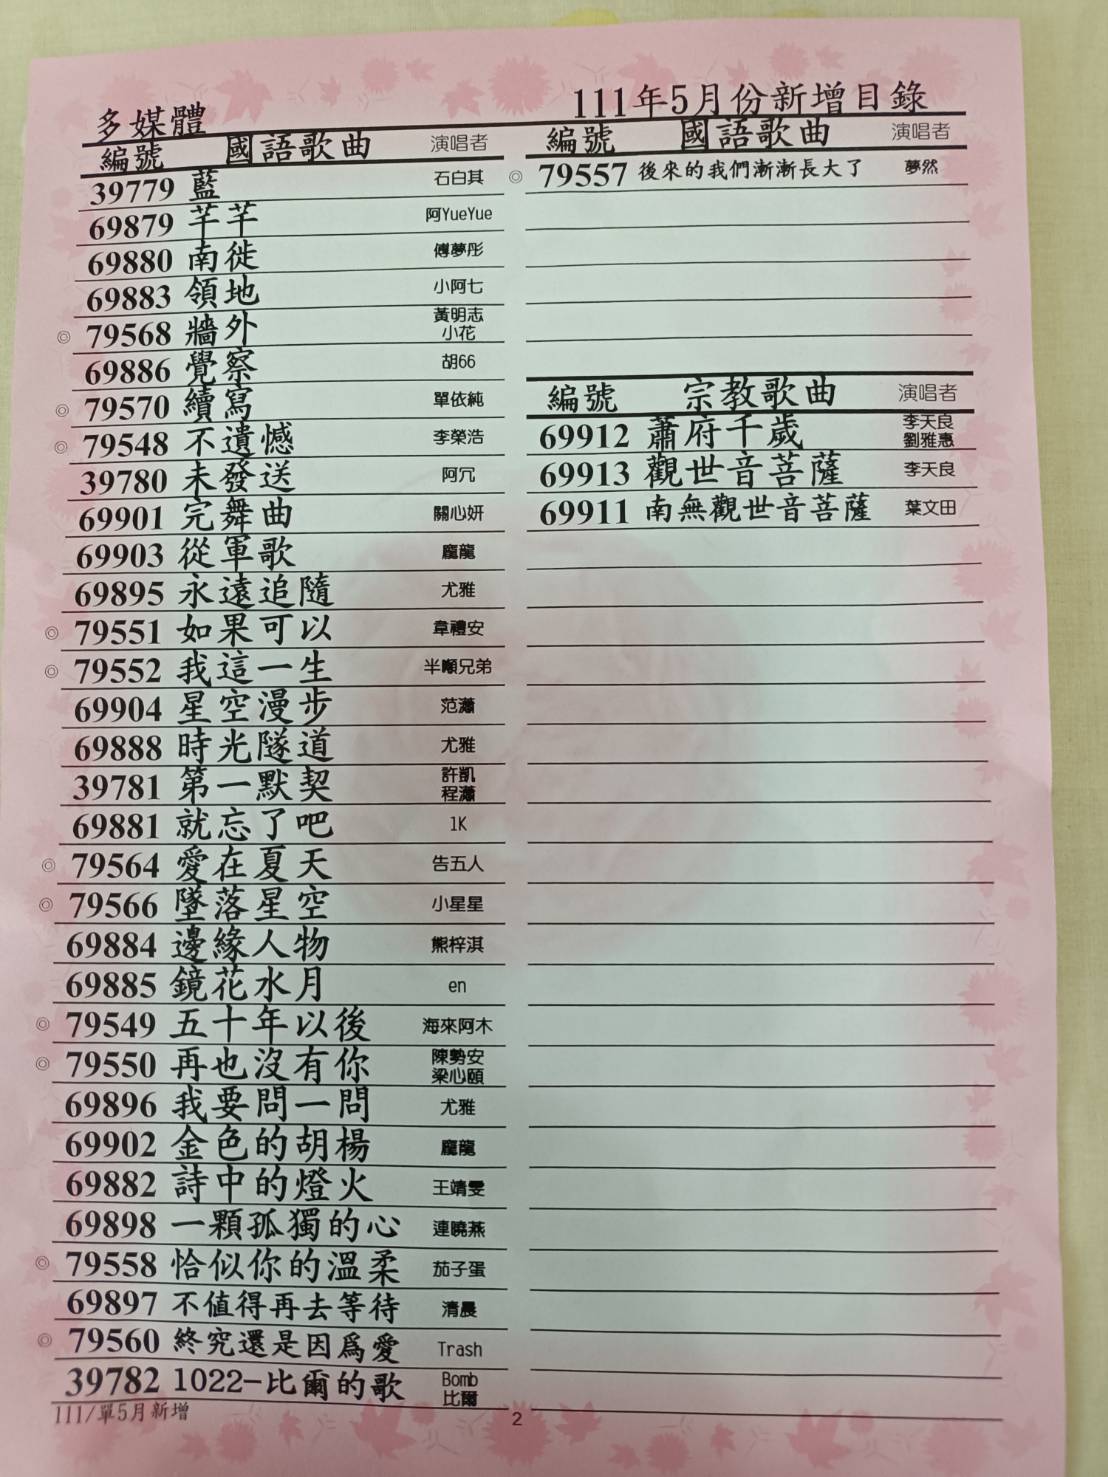 多媒體
111年5月份新增目錄
編號 國語歌曲 演唱者
39779 藍 石白其
69879 芊芊 阿YueYue
69880 南徙 傅夢彤
69883 領地 小阿七
◎ 79568 牆外 黃明志 小花
69886 覺察 胡66
◎ 79570 續寫 單依純
◎ 79548 不遺憾 李榮浩
39780 未發送 阿冗
69901 完舞曲 關心妍
69903 從軍歌 龐龍
69895 永遠追隨 尤雅
◎ 79551 如果可以 韋禮安
◎ 79552 我這一生 半噸兄弟
69904 星空漫步 范瀟
69888 時光隧道 尤雅
39781 第一默契 許凱 程瀟
69881 就忘了吧 1K
◎ 79564 愛在夏天 告五人
◎ 79566 墜落星空 小星星
69884 邊緣人物 熊梓淇
69885 鏡花水月 en
◎ 79549 五十年以後 海來阿木
◎ 79550 再也沒有你 陳勢安 梁心頤
69896 我要問一問 尤雅
69902 金色的胡楊 龐龍
69882 詩中的燈火 王靖雯
69898 一顆孤獨的心 連曉燕
◎ 79558 恰似你的溫柔 茄子蛋
69897 不值得再去等待 清晨
◎ 79560 終究還是因為愛 Trash
39782 1022-比爾的歌 Bomb 比爾
111/單5月新增
編號 國語歌曲 演唱者
◎ 79557 後來的我們漸漸長大了 夢然
編號 宗教歌曲 演唱者
69912 蕭府千歲 李天良 劉雅惠
69913 觀世音菩薩 李天良
69911 南無觀世音菩薩 葉文田
2